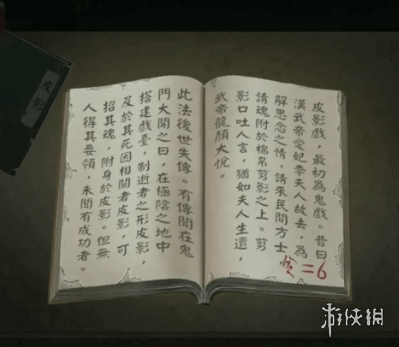 皮影戲，最初為鬼戲。昔日
漢武帝愛妃李夫人故去，為
解思念之情，請來民間方士
請魂附於棉帛剪影之上。剪
影口吐人言，猶如夫人生還，
武帝龍顏大悅。
貪=6
此法後世失傳。有傳聞在鬼
門大開之日，在極陰之地中
搭建戲臺，制逝者之形皮影，
及於其死因相關者皮影，可
招其魂，附身於皮影。但無
人得其要領，未聞有成功者。
皮影
游侠網